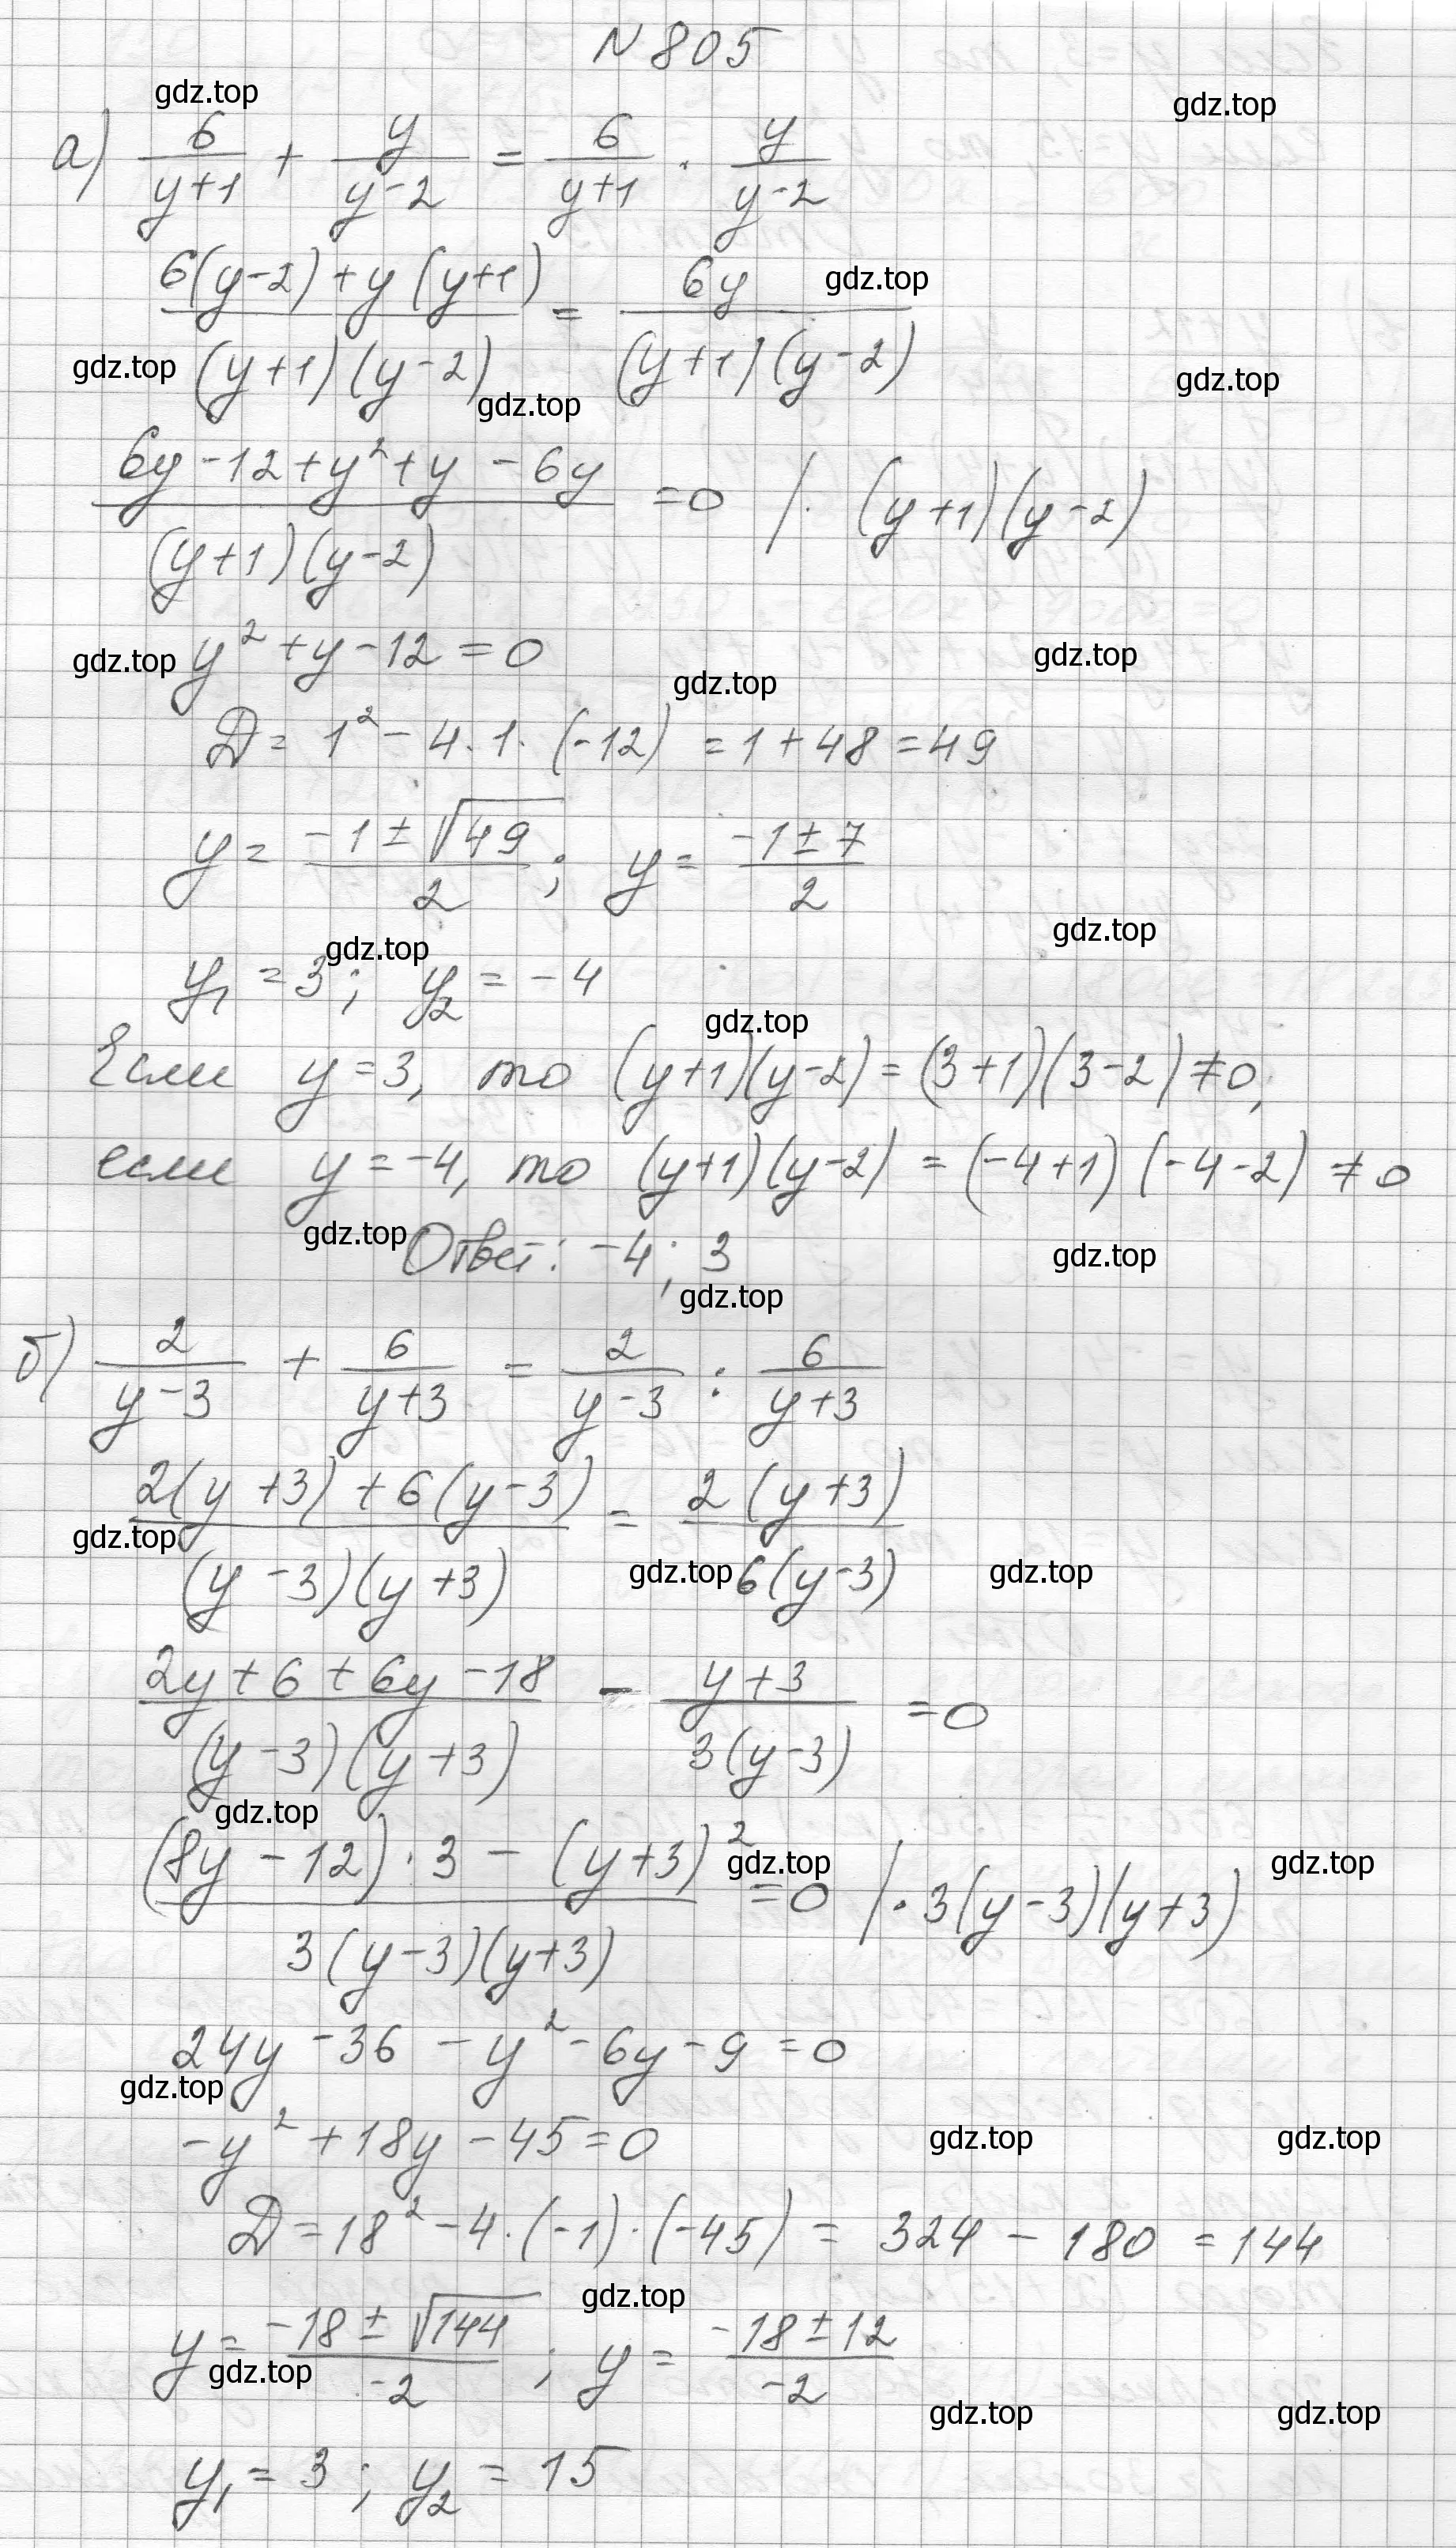 N 805
gdz.top
gdz.top
а) 6/(y+1) + y/(y-2) = 6/(y+1) · y/(y-2)
(6(y-2)+y(y+1))/((y+1)(y-2)) = 6y/((y+1)(y-2))
gdz.top
gdz.top
gdz.top
gdz.top
(6y-12+y²+y-6y)/((y+1)(y-2)) = 0 /· (y+1)(y-2)
y²+y-12=0
gdz.top
gdz.top
gdz.top
D = 1² - 4·1·(-12) = 1+48 = 49
y = (-1±√49)/2; y = (-1±7)/2
gdz.top
gdz.top
y₁ = 3; y₂ = -4
gdz.top
Если y=3, то (y+1)(y-2) = (3+1)(3-2) ≠ 0,
если y=-4, то (y+1)(y-2) = (-4+1)(-4-2) ≠ 0
gdz.top
Ответ: -4; 3
gdz.top
gdz.top
б) 2/(y-3) + 6/(y+3) = 2/(y-3) : 6/(y+3)
(2(y+3)+6(y-3))/((y-3)(y+3)) = 2(y+3)/(6(y-3))
gdz.top
gdz.top
gdz.top
(2y+6+6y-18)/((y-3)(y+3)) - (y+3)/(3(y-3)) = 0
gdz.top
((8y-12)·3-(y+3)²)/(3(y-3)(y+3)) = 0 /·3(y-3)(y+3)
gdz.top
gdz.top
24y-36-y²-6y-9=0
gdz.top
-y²+18y-45=0
gdz.top
gdz.top
D = 18²-4·(-1)·(-45) = 324-180 = 144
gdz.top
y = (-18±√144)/-2; y = (-18±12)/-2
gdz.top
gdz.top
gdz.top
y₁ = 3; y₂ = 15